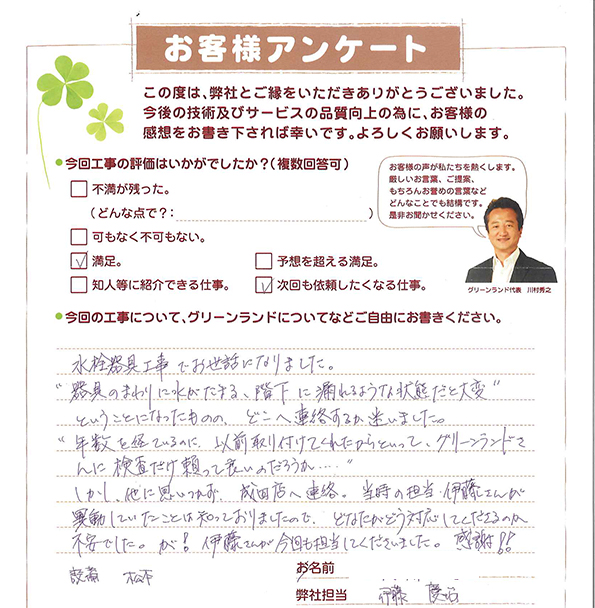 お客様アンケート
この度は、弊社とご縁をいただきありがとうございました。
今後の技術及びサービスの品質向上の為に、お客様の
感想をお書き下されば幸いです。よろしくお願いします。
今回工事の評価はいかがでしたか?(複数回答可)
不満が残った。
(どんな点で?: )
可もなく不可もない。
満足。
予想を超える満足。
知人等に紹介できる仕事。
次回も依頼したくなる仕事。
お客様の声が私たちを熱くします。
厳しいお言葉、ご提案、
もちろんお誉めの言葉など
どんなことでも結構です。
是非お聞かせください。
グリーンランド代表 川村秀之
今回の工事について、グリーンランドについてなどご自由にお書きください。
水栓器具工事でお世話になりました。
"器具のまわりに水がたまる、階下に漏れるような状態だと大変"
ということになったものの、どこへ連絡するか迷いました。
"年数を経ているのに、以前取り付けてくれたからといって、グリーンランドさ
んに検査だけ頼って良いのだろうか…"
しかし、他に思いつかず、成田店へ連絡。当時の担当伊藤さんが
異動していたことは知っておりましたので、どなたがどう対応してくださるのか
不安でした。が!伊藤さんが今回も担当してくださいました。感謝!!
松本
お名前
弊社担当 伊藤